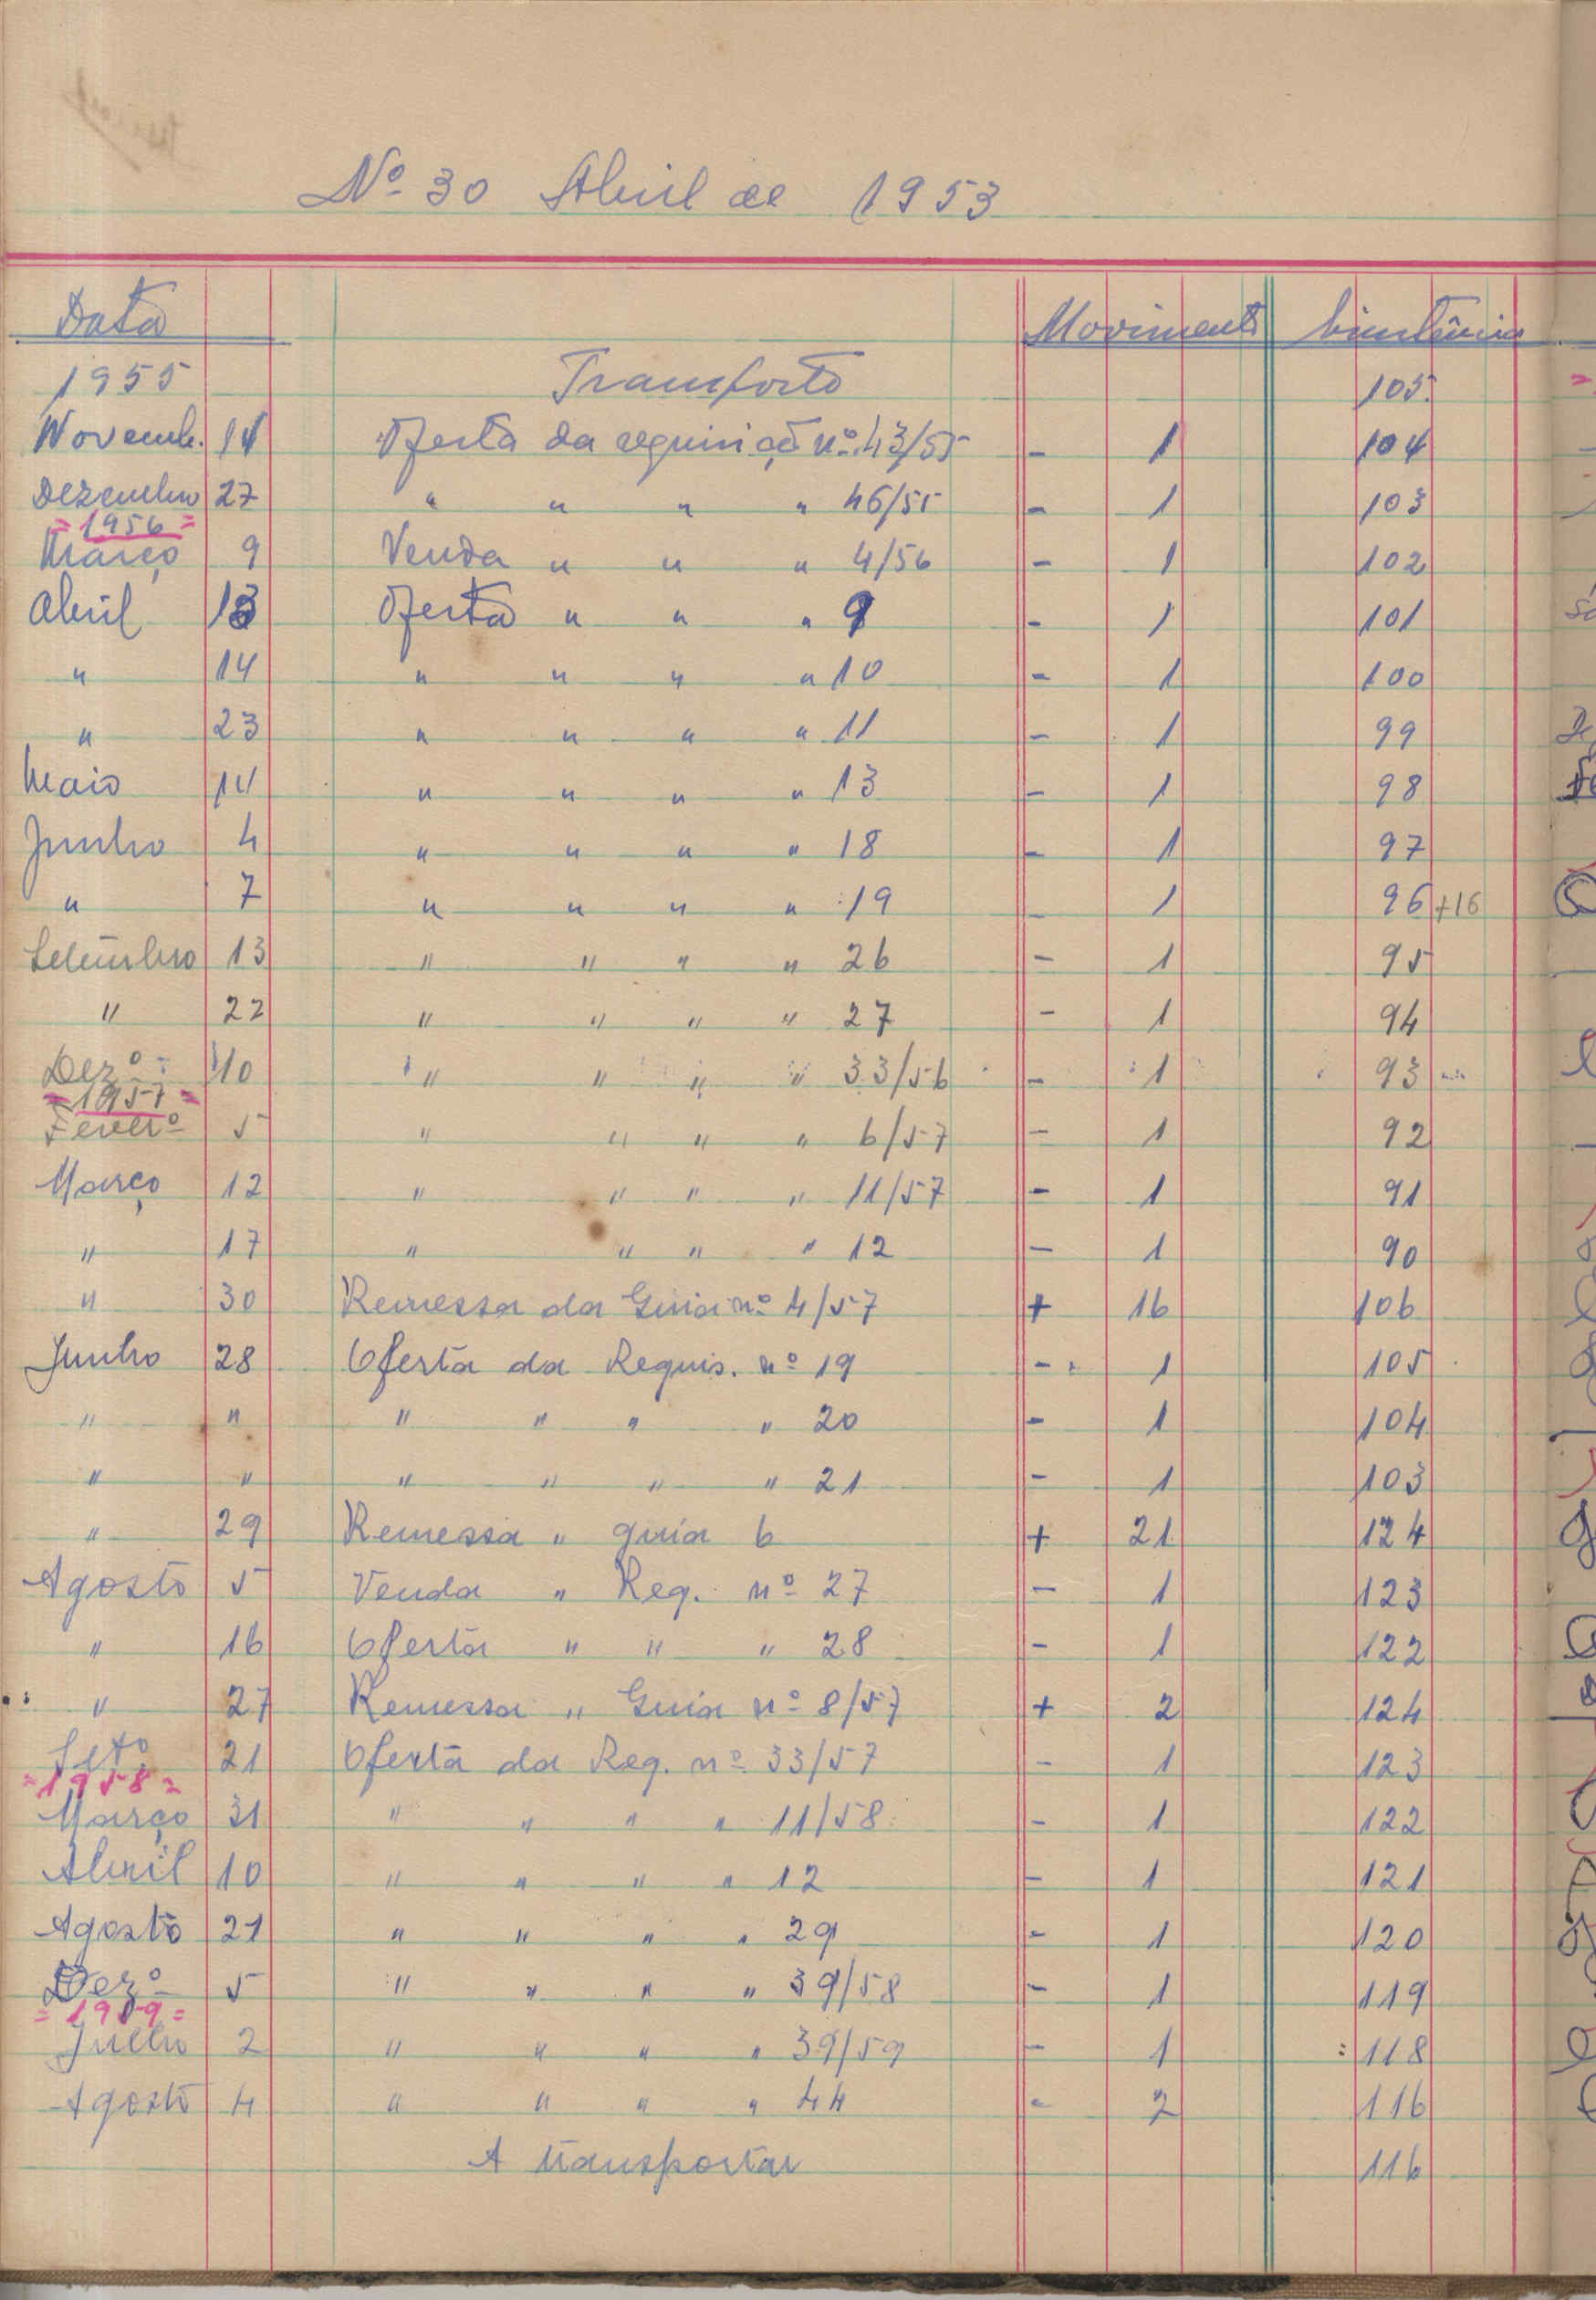 Nº 30 Abril de 1953
Data Movimento Existência
1955 Transporte 105
Novemb. 14 Oferta da requisição nº 43/55 - 1 104
Dezembro 27 " " " " 46/55 - 1 103
=1956=
Março 9 Venda " " " 4/56 - 1 102
Abril 13 Oferta " " " 9 - 1 101
" 14 " " " " 10 - 1 100
" 23 " " " " 11 - 1 99
Maio 14 " " " " 13 - 1 98
Junho 4 " " " " 18 - 1 97
" 7 " " " " 19 - 1 96 +16
Setembro 13 " " " " 26 - 1 95
" 22 " " " " 27 - 1 94
Dezº 10 " " " " 33/56 - 1 93
=1957=
Feverº 5 " " " " 6/57 - 1 92
Março 12 " " " " 11/57 - 1 91
" 17 " " " " 12 - 1 90
" 30 Remessa da Guia nº 4/57 + 16 106
Junho 28 Oferta da Requis. nº 19 - 1 105
" " " " " " 20 - 1 104
" " " " " " 21 - 1 103
" 29 Remessa " guia 6 + 21 124
Agosto 5 Venda " Req. nº 27 - 1 123
" 16 Oferta " " " 28 - 1 122
" 27 Remessa " Guia nº 8/57 + 2 124
Setº 21 Oferta da Req. nº 33/57 - 1 123
=1958=
Março 31 " " " " 11/58 - 1 122
Abril 10 " " " " 12 - 1 121
Agosto 21 " " " " 29 - 1 120
Dezº 5 " " " " 39/58 - 1 119
=1959=
Julho 2 " " " " 39/59 - 1 118
Agosto 4 " " " " 44 - 2 116
A transportar 116